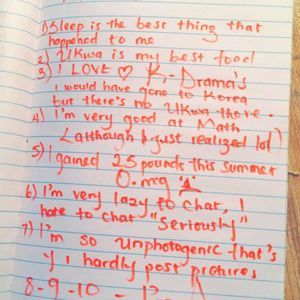 1) Sleep is the best thing that
happened to me
2) Ukwa is my best food
3) I LOVE ♡ K-Drama's
I would have gone to Korea
but there's no Ukwa there.
4) I'm very good at Math
(although I just realized lol)
5) I gained 25 pounds this summer
O.mg
6) I'm very lazy to chat, I
hate to chat "Seriously"
7) I'm so unphotogenic that's
y I hardly post pictures
8-9-10 -